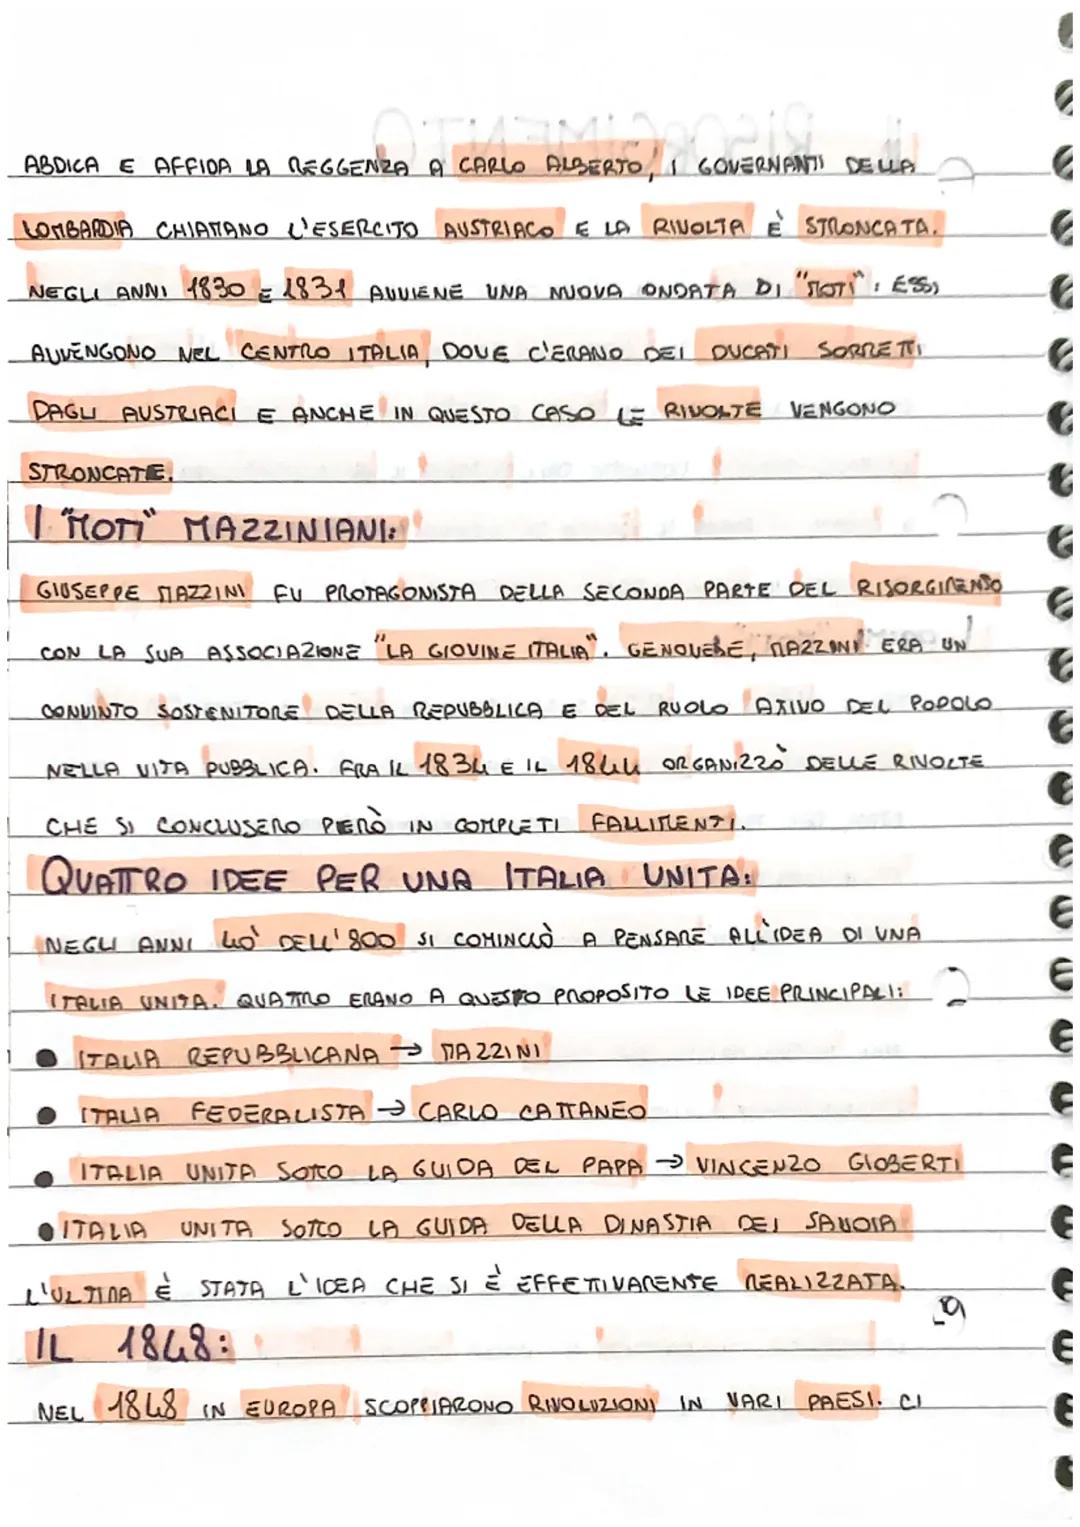 ABDICA E AFFIDA LA REGGENZA A CARLO ALBERTO, I GOVERNANTI DELLA
LOMBARDIA CHIAMANO L'ESERCITO AUSTRIACO E LA RIVOLTA È STRONCATA.
NEGLI ANNI 1830 E 1831 AVVIENE UNA NUOVA ONDATA DI "MOTI": ESSI
AVVENGONO NEL CENTRO ITALIA, DOVE C'ERANO DEI DUCATI SORRETTI
DAGLI AUSTRIACI E ANCHE IN QUESTO CASO LE RIVOLTE VENGONO
STRONCATE.
I "MOTI" MAZZINIANI:
GIUSEPPE MAZZINI FU PROTAGONISTA DELLA SECONDA PARTE DEL RISORGIMENTO
CON LA SUA ASSOCIAZIONE "LA GIOVINE ITALIA". GENOVESE, MAZZINI ERA UN
CONVINTO SOSTENITORE DELLA REPUBBLICA E DEL RUOLO ATTIVO DEL POPOLO
NELLA VITA PUBBLICA. FRA IL 1834 E IL 1844 ORGANIZZÒ DELLE RIVOLTE
CHE SI CONCLUSERO PERÒ IN COMPLETI FALLIMENTI.
QUATTRO IDEE PER UNA ITALIA UNITA:
NEGLI ANNI 40' DELL'800 SI COMINCIÒ A PENSARE ALL'IDEA DI UNA
ITALIA UNITA. QUATTRO ERANO A QUESTO PROPOSITO LE IDEE PRINCIPALI:
● ITALIA REPUBBLICANA → MAZZINI
● ITALIA FEDERALISTA → CARLO CATTANEO
● ITALIA UNITA SOTTO LA GUIDA DEL PAPA → VINCENZO GIOBERTI
● ITALIA UNITA SOTTO LA GUIDA DELLA DINASTIA DEI SAVOIA
L'ULTIMA È STATA L'IDEA CHE SI È EFFETIVAMENTE REALIZZATA.
IL 1848:
NEL 1848 IN EUROPA SCOPPIARONO RIVOLUZIONI IN VARI PAESI. CI